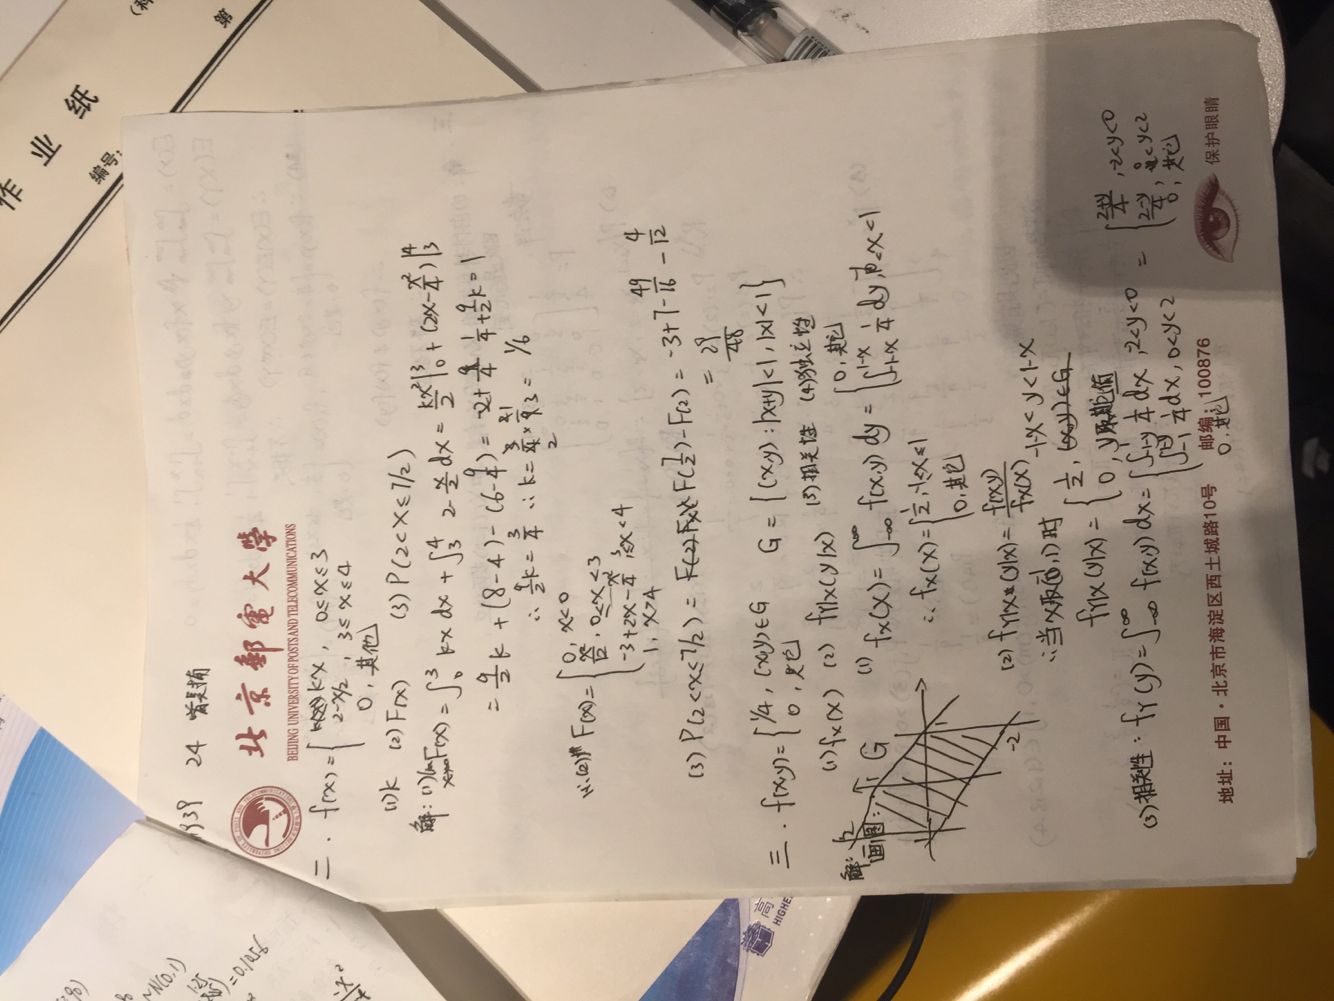 作业纸
编号:
第
N(0,1)
=0.1056
939 24
北京郵電大學
BEIJING UNIVERSITY OF POSTS AND TELECOMMUNICATIONS
二. f(x)={ kx, 0≤x≤3
2-x/2, 3≤x≤4
0, 其他
(1)k (2)F(x) (3) P(2<X≤7/2)
解: (1) lim F(x) = ∫₀³ kx dx + ∫₃⁴ 2-x/2 dx = kx²/2|₀³ + (2x-x²/4)|₃⁴
= 9/2 k + (8-4)-(6-9/4) = -2+9/4 1/4+9/2k=1
∴ 9/2k = 3/4 ∴ k = 1/6
(2) F(x)={ 0, x<0
x²/12, 0≤x<3
-3+2x-x²/4, 3≤x<4
1, x>4
(3) P(2<x≤7/2) = F(7/2)-F(2) = -3+7-49/16 - 4/12
= 29/48
三. f(x,y)={ 1/4, (x,y)∈G G={(x,y):|x+y|<1, |x|<1}
0, 其它
(1) fx(x) (2) fY|X(y|x) (3)相关性 (4)独立性
解:
画图: G
2
1
1
-2
(1) fx(x) = ∫₋∞^∞ f(x,y) dy = { 0, 其它
∫₋₁₋ₓ^1-x 1/4 dy, -1<x<1
∴ fx(x)={ 1/2, -1≤x≤1
0, 其它
(2) fY|X(y|x) = f(x,y)/fx(x)
∴当x取(-1,1)时 -1-x<y<1-x
fY|X(y|x) = { 1/2, (x,y)∈G
0, y取其它值
(3)相关性: fY(y) = ∫₋∞^∞ f(x,y) dx = { ∫₋₁₋y^1 1/4 dx, -2<y<0 = { 2+y/4, -2<y<0
∫₋₁^1-y 1/4 dx, 0<y<2 2-y/4, 0<y<2
0, 其它 0, 其它
地址：中国·北京市海淀区西土城路10号 邮编：100876
保护眼睛
高
HIGHE